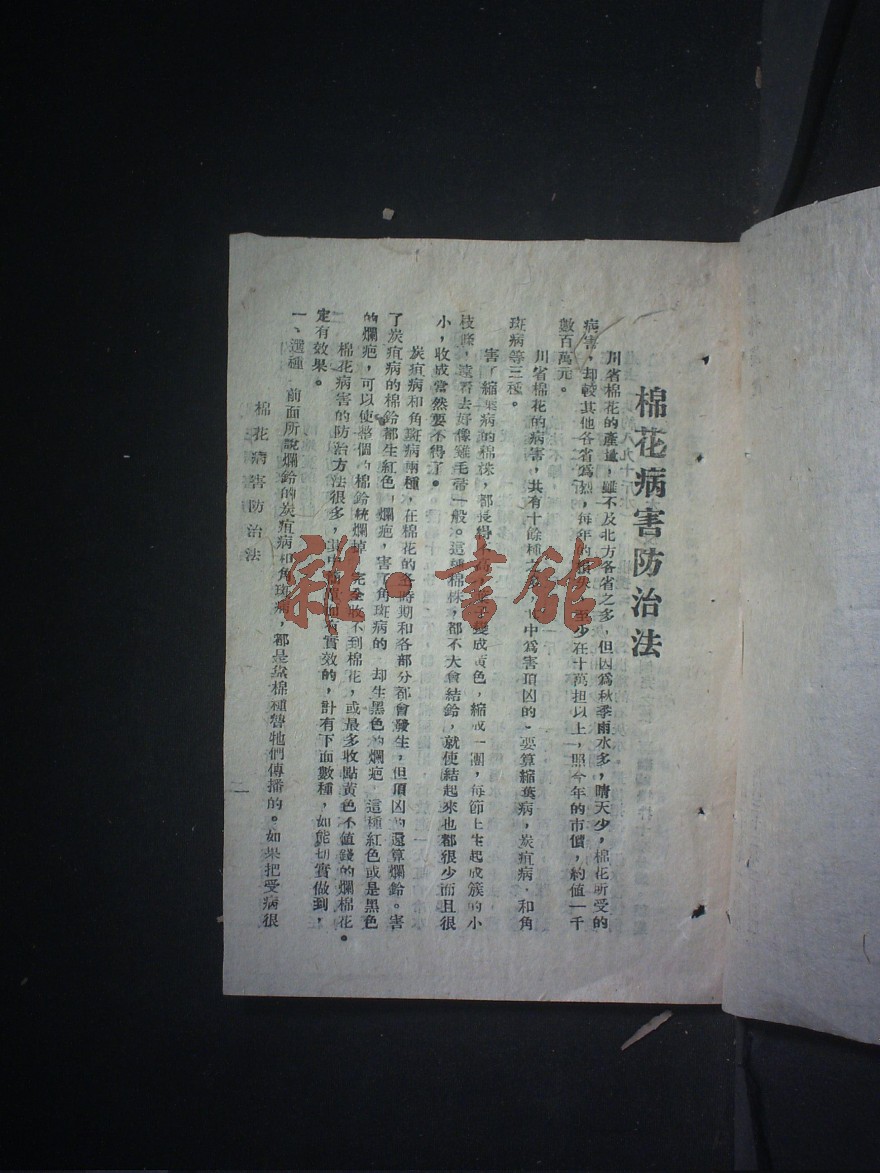 棉花病害防治法
川省棉花的產量，雖不及北方各省之多，但因爲秋季雨水多，晴天少，棉花所受的
病害，却較其他各省爲烈，每年的損失，至少在十萬担以上，照今年的市價，約値一千
數百萬元。
川省棉花的病害，共有十餘種之多，其中爲害頂凶的，要算縮葉病，炭疽病，和角
斑病等三種。
害了縮葉病的棉株，都長得不高，葉子變成黃色，縮成一團，每節上生起成簇的小
枝條，遠看去好像雞毛帚一般。這種棉株，都不大會結鈴，就使結起來也都很少而且很
小，收成當然要不得了。
炭疽病和角斑病兩種，在棉花的各時期和各部分都會發生，但頂凶的還算爛鈴。害
了炭疽病的棉鈴都生紅色，爛疤，害了角斑病的，却生黑色的爛疤，這種紅色或是黑色
的爛疤，可以使整個的棉鈴統爛掉，完全收不到棉花，或最多收點黃色不値錢的爛棉花。
棉花病害的防治方法很多，其中實效的，計有下面數種，如能切實做到，
定有效果。
一、選種 前面所說爛鈴的炭疽病和角斑病，都是靠棉種替牠們傳播的。如果把受病很
棉花病害防治法
一
雜·書館